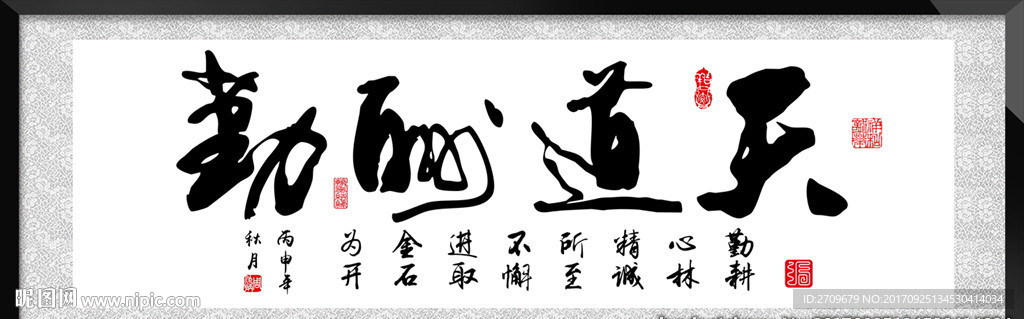 天道酬勤
勤耕
心林
精诚
所至
不懈
进取
金石
为开
丙申年
秋月
昵图网 www.nipic.com
ID:2709679 NO:20170925134530414034